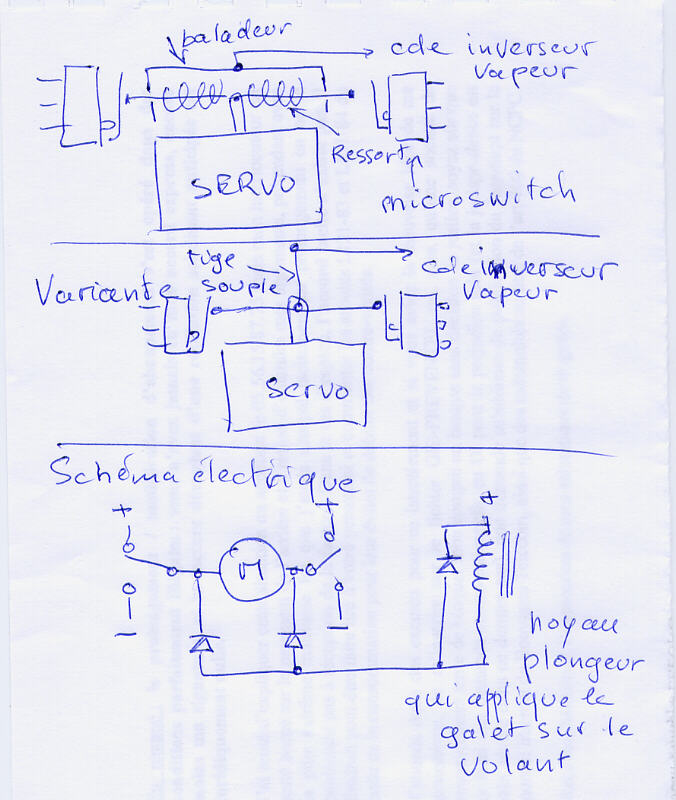 baladeur
cde inverseur
vapeur
Ressort
SERVO
microswitch
tige
souple
cde inverseur
Vapeur
Variante
servo
Schéma électrique
+
+
+
M
−
−
noyau
plongeur
qui applique le
galet sur le
volant